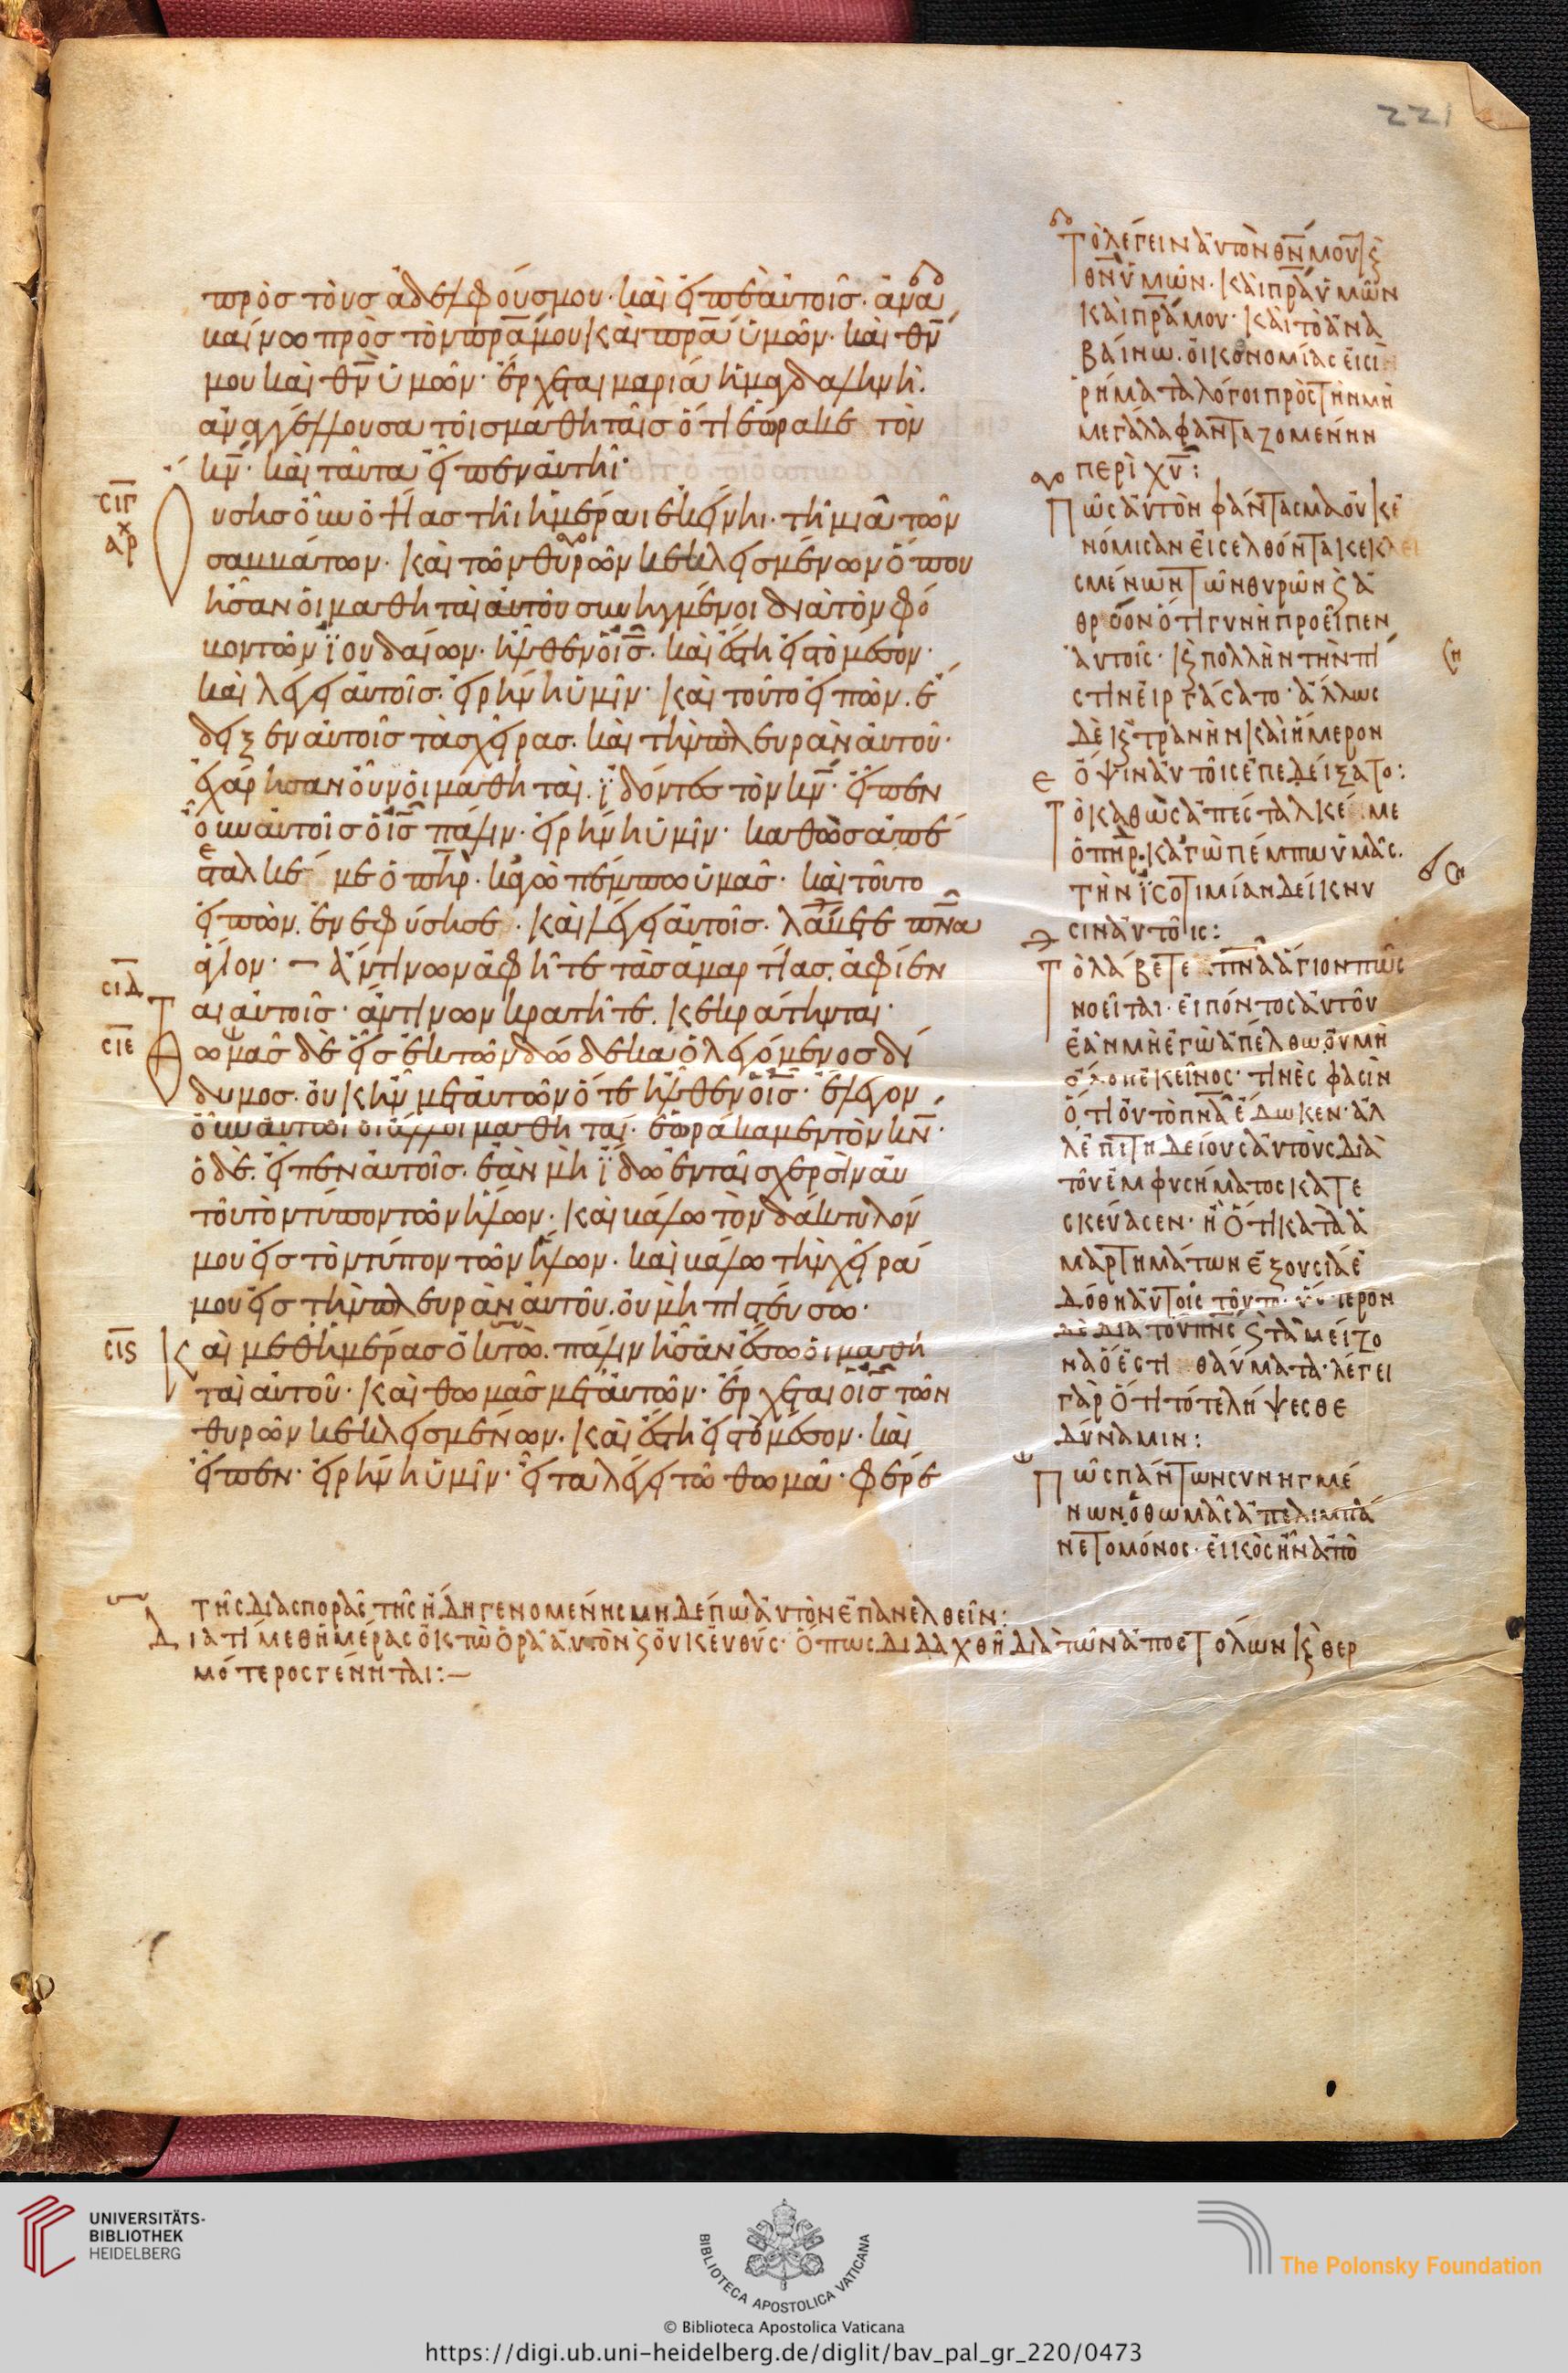 221
πρὸσ τοὺσ ἀδελφούσ μου· καὶ εἰπὲ αὐτοῖσ· ἀνα
βαίνω πρὸσ τὸν πρ̅α μου καὶ πρ̅α ὑμῶν· καὶ θ̅ν
μου καὶ θ̅ν ὑμῶν· ἔρχεται μαρία ἡ μαγδαληνὴ.
ἀναγγέλλουσα τοῖσ μαθηταῖσ ὅτι ἑώρακε τὸν
κ̅ν· καὶ ταῦτα εἶπεν αὐτῆι·
σ̅ι̅γ
αρχ
Ουσησ οὖν ὀψίασ τῆι ἡμέραι ἐκείνηι· τῆ μιᾶ τῶν
σαββάτων· καὶ τῶν θυρῶν κεκλεισμένων ὅπου
ἦσαν οἱ μαθηταὶ αὐτοῦ συνηγμένοι διὰ τὸν φό
βον τῶν ἰουδαίων· ἦλθεν ὁ ι̅σ· καὶ ἔστη εἰσ τὸ μέσον·
καὶ λέγει αὐτοῖσ· εἰρήνη ὑμῖν· καὶ τοῦτο εἰπὼν· ἔ
δειξεν αὐτοῖσ τὰσ χεῖρασ· καὶ τὴν πλευρὰν αὐτοῦ·
ἐχάρησαν οὖν οἱ μαθηταὶ· ἰδόντεσ τὸν κ̅ν· εἶπεν
οὖν αὐτοῖσ ὁ ι̅σ πάλιν· εἰρήνη ὑμῖν· καθὼσ ἀπέ
σταλκέ με ὁ π̅η̅ρ· καγὼ πέμπω ὑμᾶσ· καὶ τοῦτο
εἰπὼν· ἐνεφύσησε· καὶ λέγει αὐτοῖσ· λάβετε π̅ν̅α
ἅγιον· ἄν τινων ἀφῆτε τὰσ ἁμαρτίασ· ἀφίεν
σ̅ι̅δ
ται αὐτοῖσ· ἄν τινων κρατῆτε· κεκράτηνται·
σ̅ι̅ε
Θωμᾶσ δὲ εἷσ ἐκ τῶν δώδεκα ὁ λεγόμενοσ δί
δυμοσ· οὐκ ἦν μετ αὐτῶν ὅτε ἦλθεν ὁ ι̅σ· ἔλεγον
οὖν αὐτῶι οἱ ἄλλοι μαθηταί· ἑωράκαμεν τὸν κ̅ν·
ὁ δὲ· εἶπεν αὐτοῖσ· ἐὰν μὴ ἴδω ἐν ταῖσ χερσὶν αὐ
τοῦ τὸν τύπον τῶν ἥλων· καὶ βάλω τὸν δάκτυλόν
μου εἰσ τὸν τύπον τῶν ἥλων· καὶ βάλω τὴν χεῖρά
μου εἰσ τὴν πλευρὰν αὐτοῦ· οὐ μὴ πιστεύσω·
σ̅ι̅ϛ
Καὶ μεθ ἡμέρασ ὀκτὼ· πάλιν ἦσαν ἔσω οἱ μαθη
ταὶ αὐτοῦ· καὶ θωμᾶσ μετ αὐτῶν· ἔρχεται ὁ ι̅σ τῶν
θυρῶν κεκλεισμένων· καὶ ἔστη εἰσ τὸ μέσον· καὶ
εἶπεν· εἰρήνη ὑμῖν· εἶτα λέγει τῶ θωμᾶ· φέρε
Τὸ λέγειν αὐτὸν θ̅ν μου κ̀
θ̅ν ὑμῶν· καὶ π̅ρ̅α ὑμῶν
καὶ π̅ρ̅α μου· καὶ τὸ ἀνα
βαίνω· οἰκονομίας εἰσὶ
ῥήματα λόγοι πρὸς τὴν μὴ
μεγάλα φανταζομένην
περὶ χ̅υ:
Πῶς αὐτὸν φάντασμα οὐκ ἐ
νόμισαν εἰσελθόντα κεκλει
σμένων τῶν θυρῶν κ ἀ
θρόον ὅτι γυνὴ προεῖπεν
αὐτοῖς· κ πολλὴν τὴν πί
στιν εἰργάσατο· ἄλλως
δὲ κ τρανὴν καὶ ἥμερον
ὄψιν αὐτοῖς ἐπεδείξατο:
Τὸ καθὼς ἀπέσταλκέ με
ὁ π̅η̅ρ· καγὼ πέμπω ὑμᾶς.
τὴν ἰσοτιμίαν δείκνυ
σιν αὐτοῖς:
Τὸ λάβετε π̅ν̅α ἅγιον πῶς
νοεῖται· εἰπόντος αὐτοῦ
ἐὰν μὴ ἐγὼ ἀπέλθω οὐ μὴ
ἐκεῖνος· τινὲς φασὶν
ὅτι οὐ τὸ π̅ν̅α ἔδωκεν· ἀλ
λ ἐπιτηδείους αὐτοὺς διὰ
τοῦ ἐμφυσήματος κατε
σκεύασεν· ἢ ὅτι κατὰ ἁ
μαρτημάτων ἐξουσία ἐ
δόθη αὐτοῖς τοῦτο· ὕστερον
δὲ διὰ τοῦ π̅ν̅ς κ τὰ μείζο
να ὅ ἐστι θαύματα· λέγει
γὰρ ὅτι τότε λήψεσθε
δύναμιν:
Πῶς πάντων συνηγμέ
νων ὁ θωμᾶς ἀπελιμπά
νετο μόνος· εἰκὸς ἦν ἀπὸ
τῆς διασπορᾶς τῆς ἤδη γενομένης μηδέπω αὐτὸν ἐπανελθεῖν:
Διατί μεθ ἡμέρας ὀκτὼ ὁρᾶ αὐτὸν κ οὐκ εὐθύς· ὅπως διδαχθῆ διὰ τῶν ἀποστόλων κ θερ
μότερος γένηται:—
UNIVERSITÄTS-
BIBLIOTHEK
HEIDELBERG
BIBLIOTECA APOSTOLICA VATICANA
The Polonsky Foundation
© Biblioteca Apostolica Vaticana
https://digi.ub.uni-heidelberg.de/diglit/bav_pal_gr_220/0473